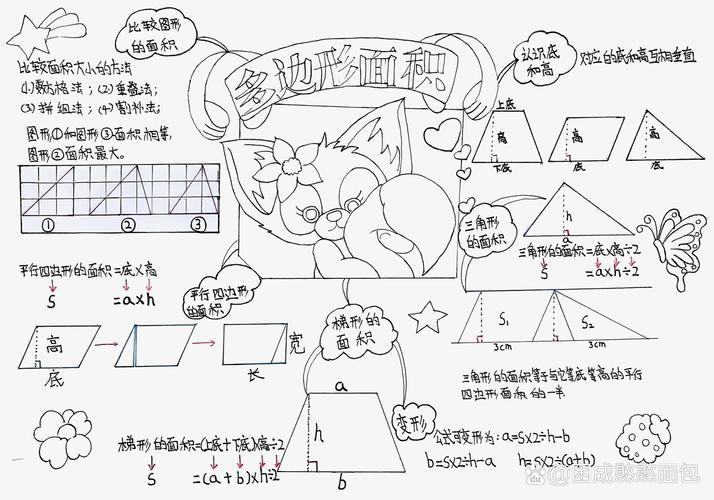 多边形面积
比较图形
的面积
比较面积大小的方法
(1)数方格法；(2)重叠法；
(3)拼组法；(4)割补法；
图形①和图形③面积相等，
图形②面积最大。
① ② ③
认识底
和高
对应的底和高互相垂直
上底
高 高 高
下底 底 底
三角形
的面积
h
a
三角形的面积=底×高÷2
S =a×h÷2
S₁ S₂
3cm 3cm
三角形的面积等于与它等底等高的平行
四边形面积的一半
平行四边形的面积=底×高
S =a×h
平行四边形
的面积
高 宽
底 长
梯形的
面积
a
h
b
梯形的面积=(上底+下底)×高÷2
S =(a+b)×h÷2
变形
公式可变形为:a=S×2÷h-b
b=S×2÷h-a h=S×2÷(a+b)
@困成熬熬面包